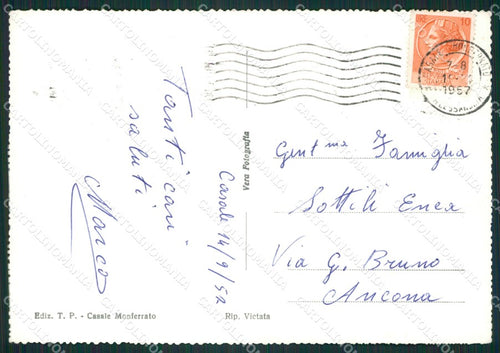 Tanti cari
saluti
Marco
Casale 14/9/57
Vera Fotografia
LIRE 10
7-8
1957
ALESSANDRIA
Gent ma Famiglia
Sottili Enea
Via G. Bruno
Ancona
Ediz. T. P. - Casale Monferrato
Rip. Vietata
CARTOLINOMANIA